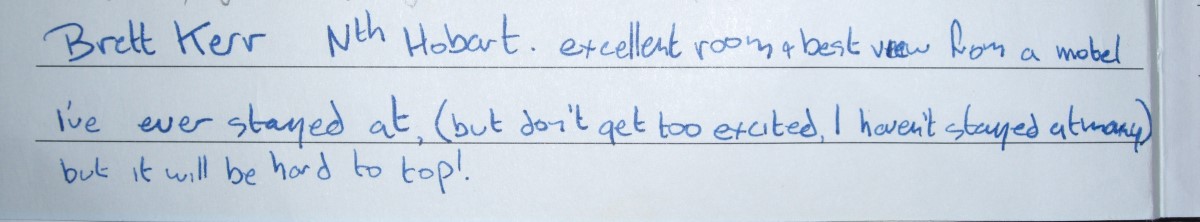 Brett Kerr Nth Hobart. excellent room + best view from a motel
I've ever stayed at, (but don't get too excited, I haven't stayed at many)
but it will be hard to top!